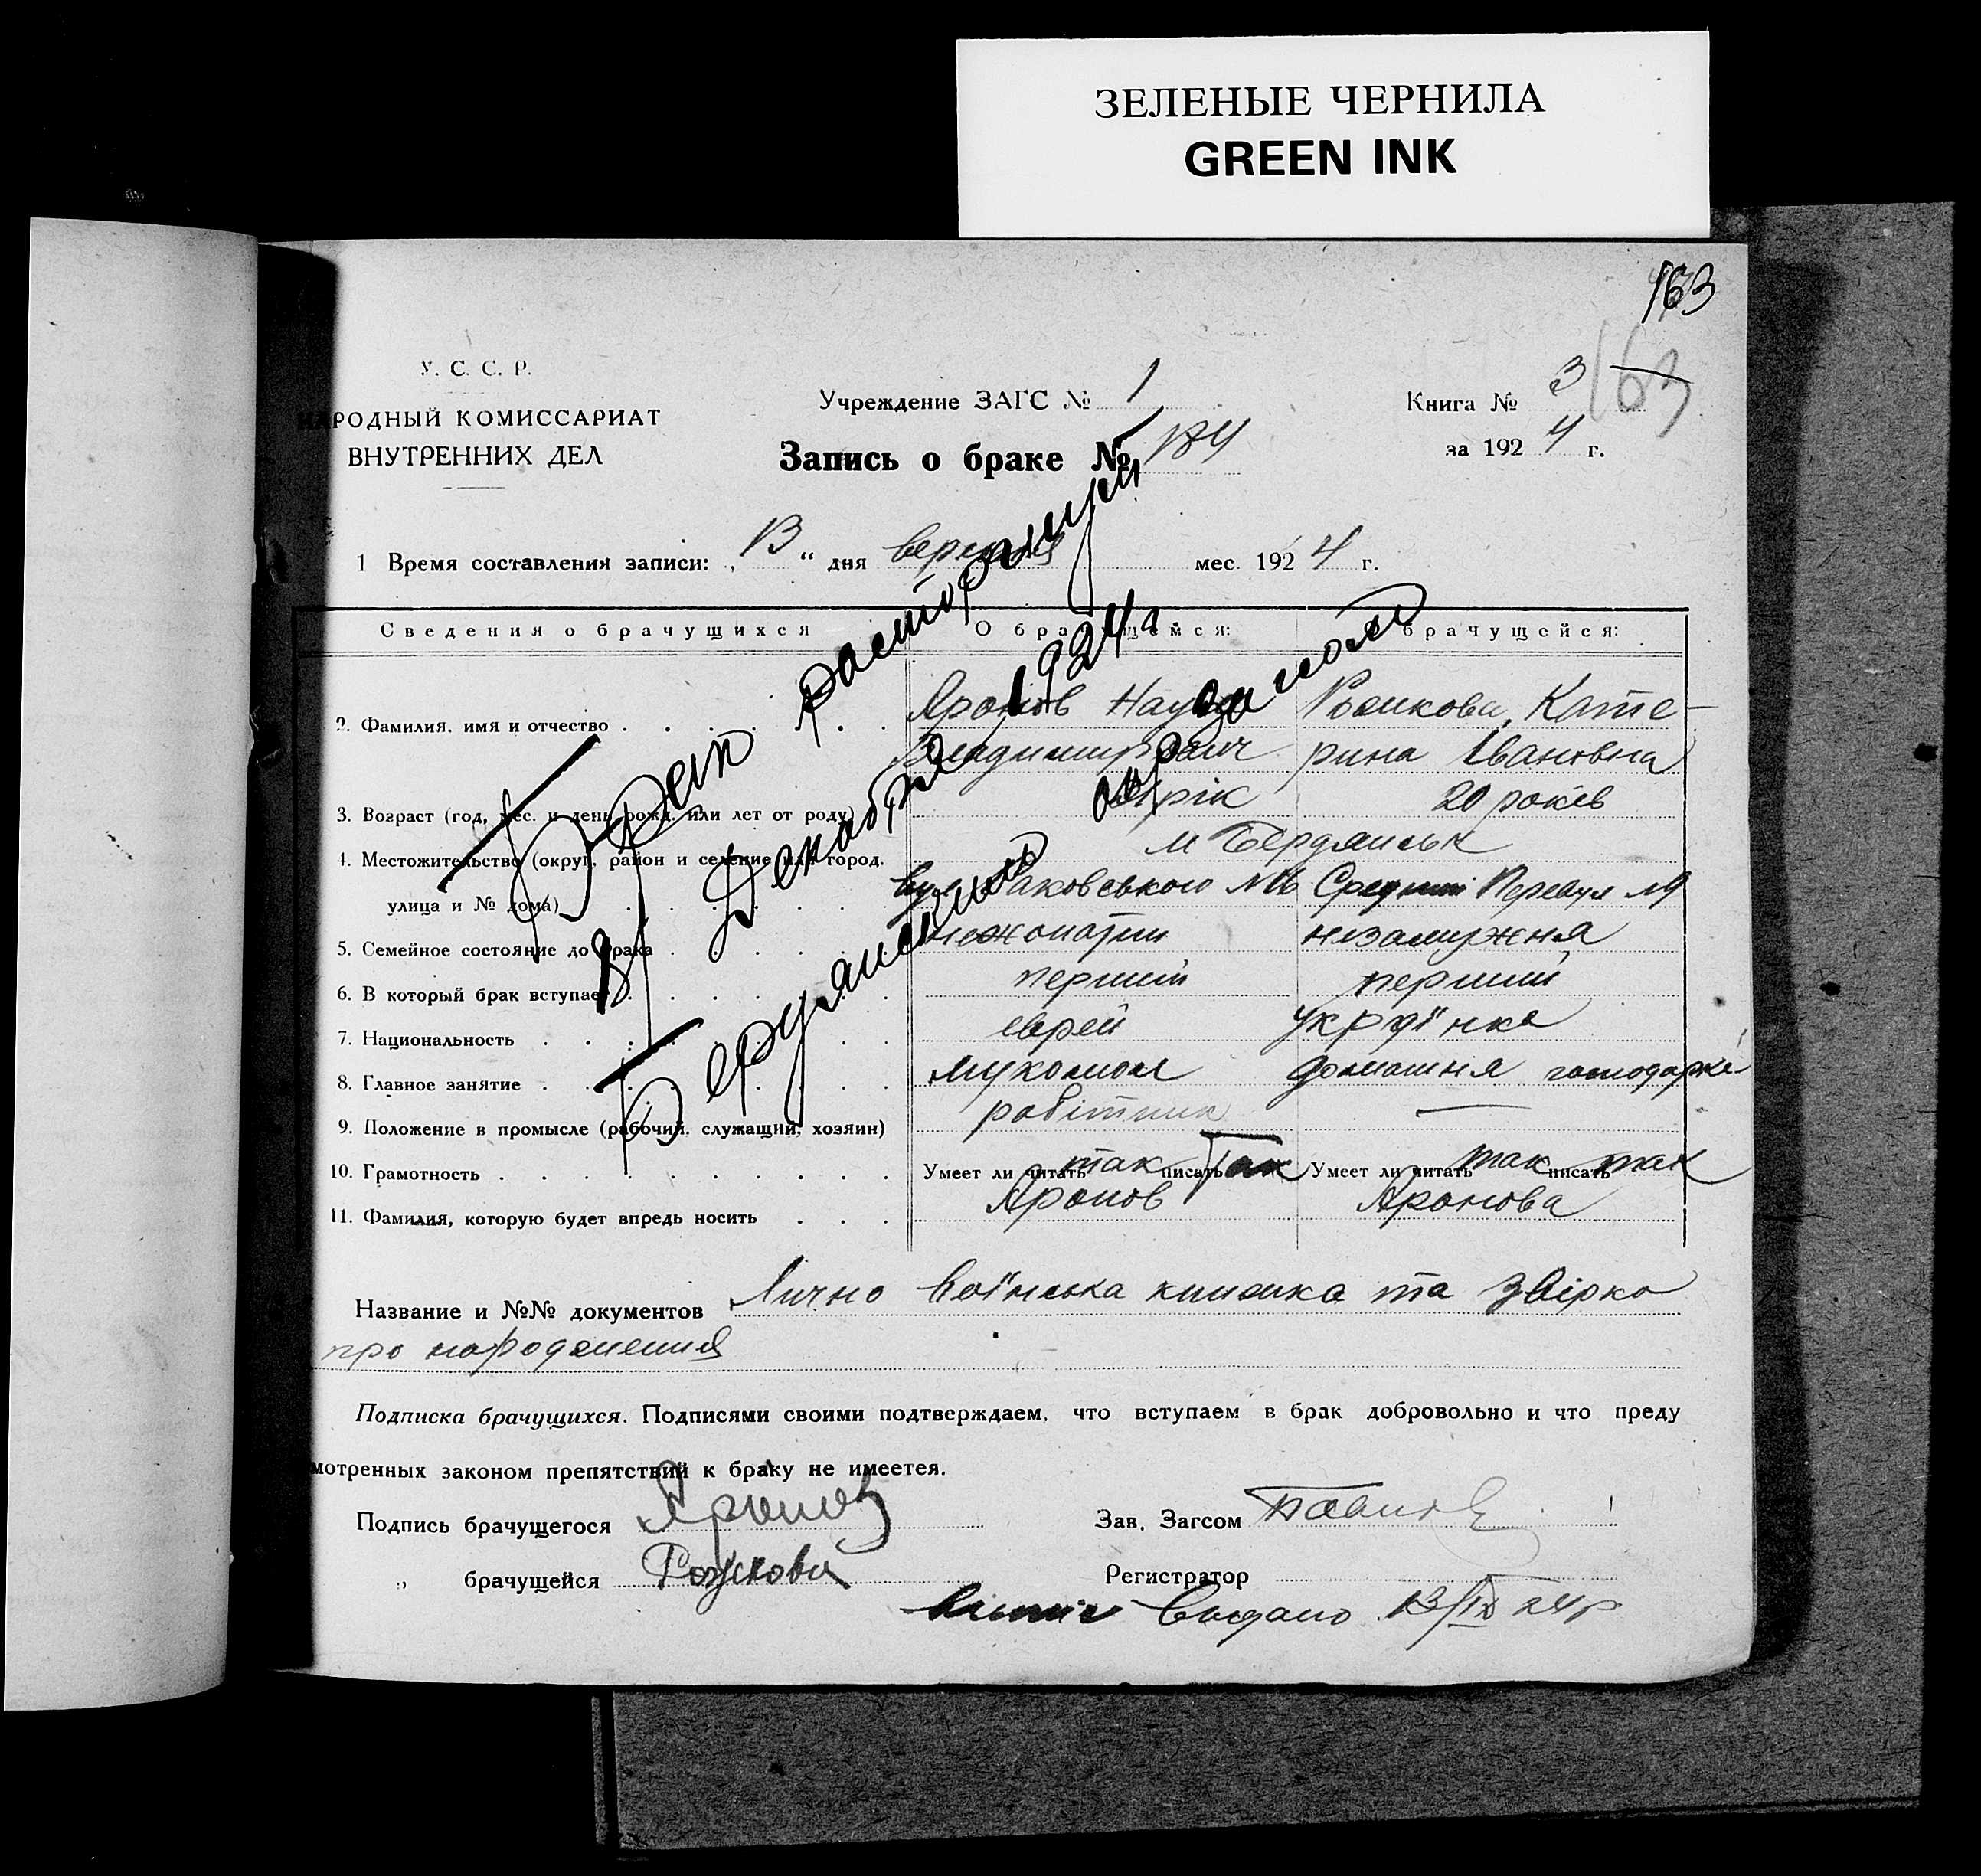 ЗЕЛЕНЫЕ ЧЕРНИЛА
GREEN INK
163
163
У. С. С. Р.
НАРОДНЫЙ КОМИССАРИАТ
ВНУТРЕННИХ ДЕЛ
Учреждение ЗАГС № 1
Запись о браке №
Книга № 3
за 1924 г.
1 Время составления записи: „13“ дня вересня мес. 1924 г.
Сведения о брачущихся
О брачущемся:
О брачущейся:
2. Фамилия, имя и отчество
Аронов Наум
Владимирович
Рожкова, Кате-
рина Івановна
3. Возраст (год, мес. и день рожд. или лет от роду)
рік
20 років
4. Местожительство (округ, район и селение или город,
улица и № дома)
м Бердянськ
вул Раковського №6
Средній Переул №9
5. Семейное состояние до брака
нежонатий
незамужня
6. В который брак вступает
перший
перший
7. Национальность
еврей
українка
8. Главное занятие
мукомол
домашня господарка
9. Положение в промысле (рабочий, служащий, хозяин)
робітник
—
10. Грамотность
Умеет ли читать так писать так
Умеет ли читать так писать так
11. Фамилия, которую будет впредь носить
Аронов
Аронова
Брак расторгнут
8/ Декабря 1924 г.
Бердянским окрзагсом
Название и №№ документов Лично воїнська книжка та звірка
про народження
Подписка брачущихся. Подписями своими подтверждаем, что вступаем в брак добровольно и что преду
мотренных законом препятствий к браку не имеется.
Подпись брачущегося Аронов
„ брачущейся Рожкова
Зав. Загсом
Регистратор
Видано 13/IX 24р